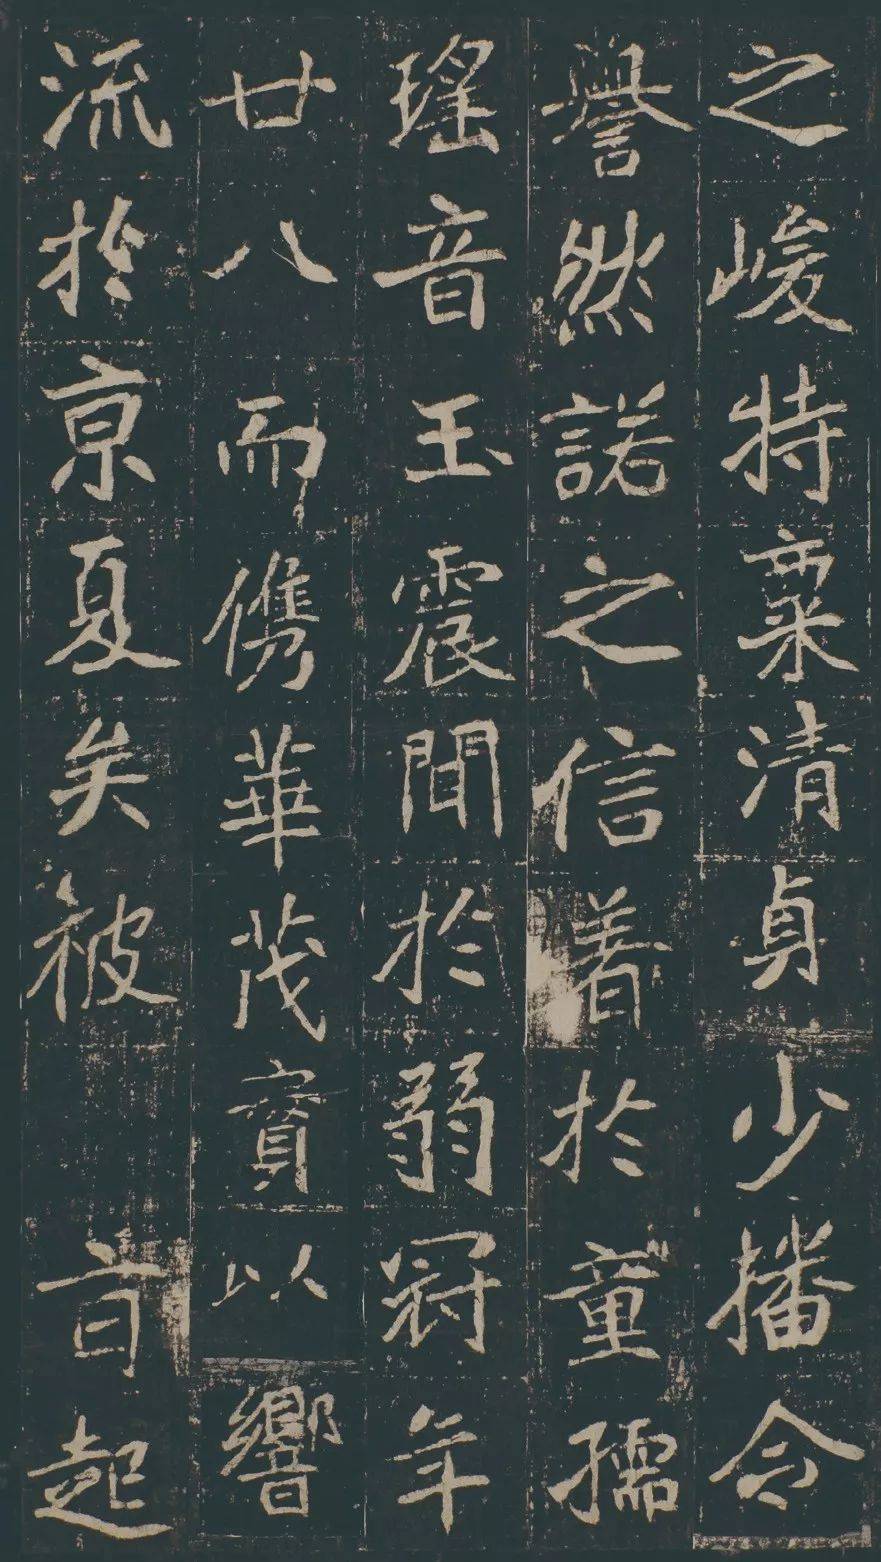 之峻特稟清貞少播令
譽然諾之信着於童孺
瑤音玉震聞於弱冠年
廿八而儁華茂實以響
流於京夏矣被　旨起